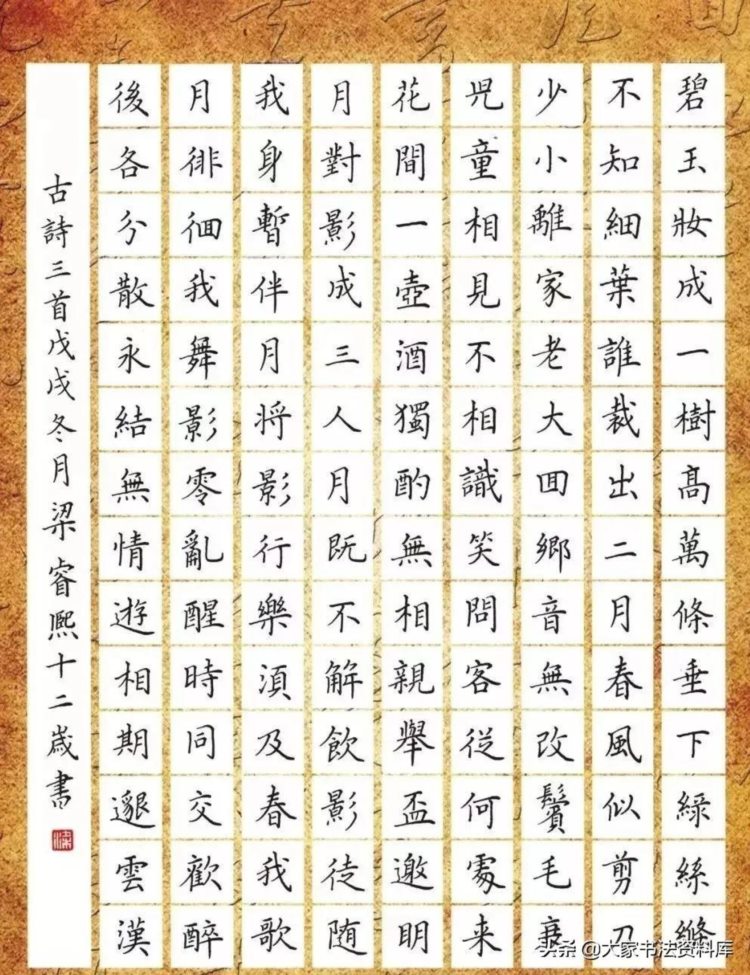 碧玉妝成一樹高萬條垂下綠絲縧
不知細葉誰裁出二月春風似剪刀
少小離家老大囬鄉音無改鬢毛衰
兒童相見不相識笑問客從何處来
花間一壺酒獨酌無相親舉盃邀明
月對影成三人月既不解飲影徒随
我身暫伴月将影行樂須及春我歌
月徘徊我舞影零亂醒時同交歡醉
後各分散永結無情遊相期邈雲漢
古詩三首戊戌冬月梁睿熙十二歲書
头条 @大家书法资料库